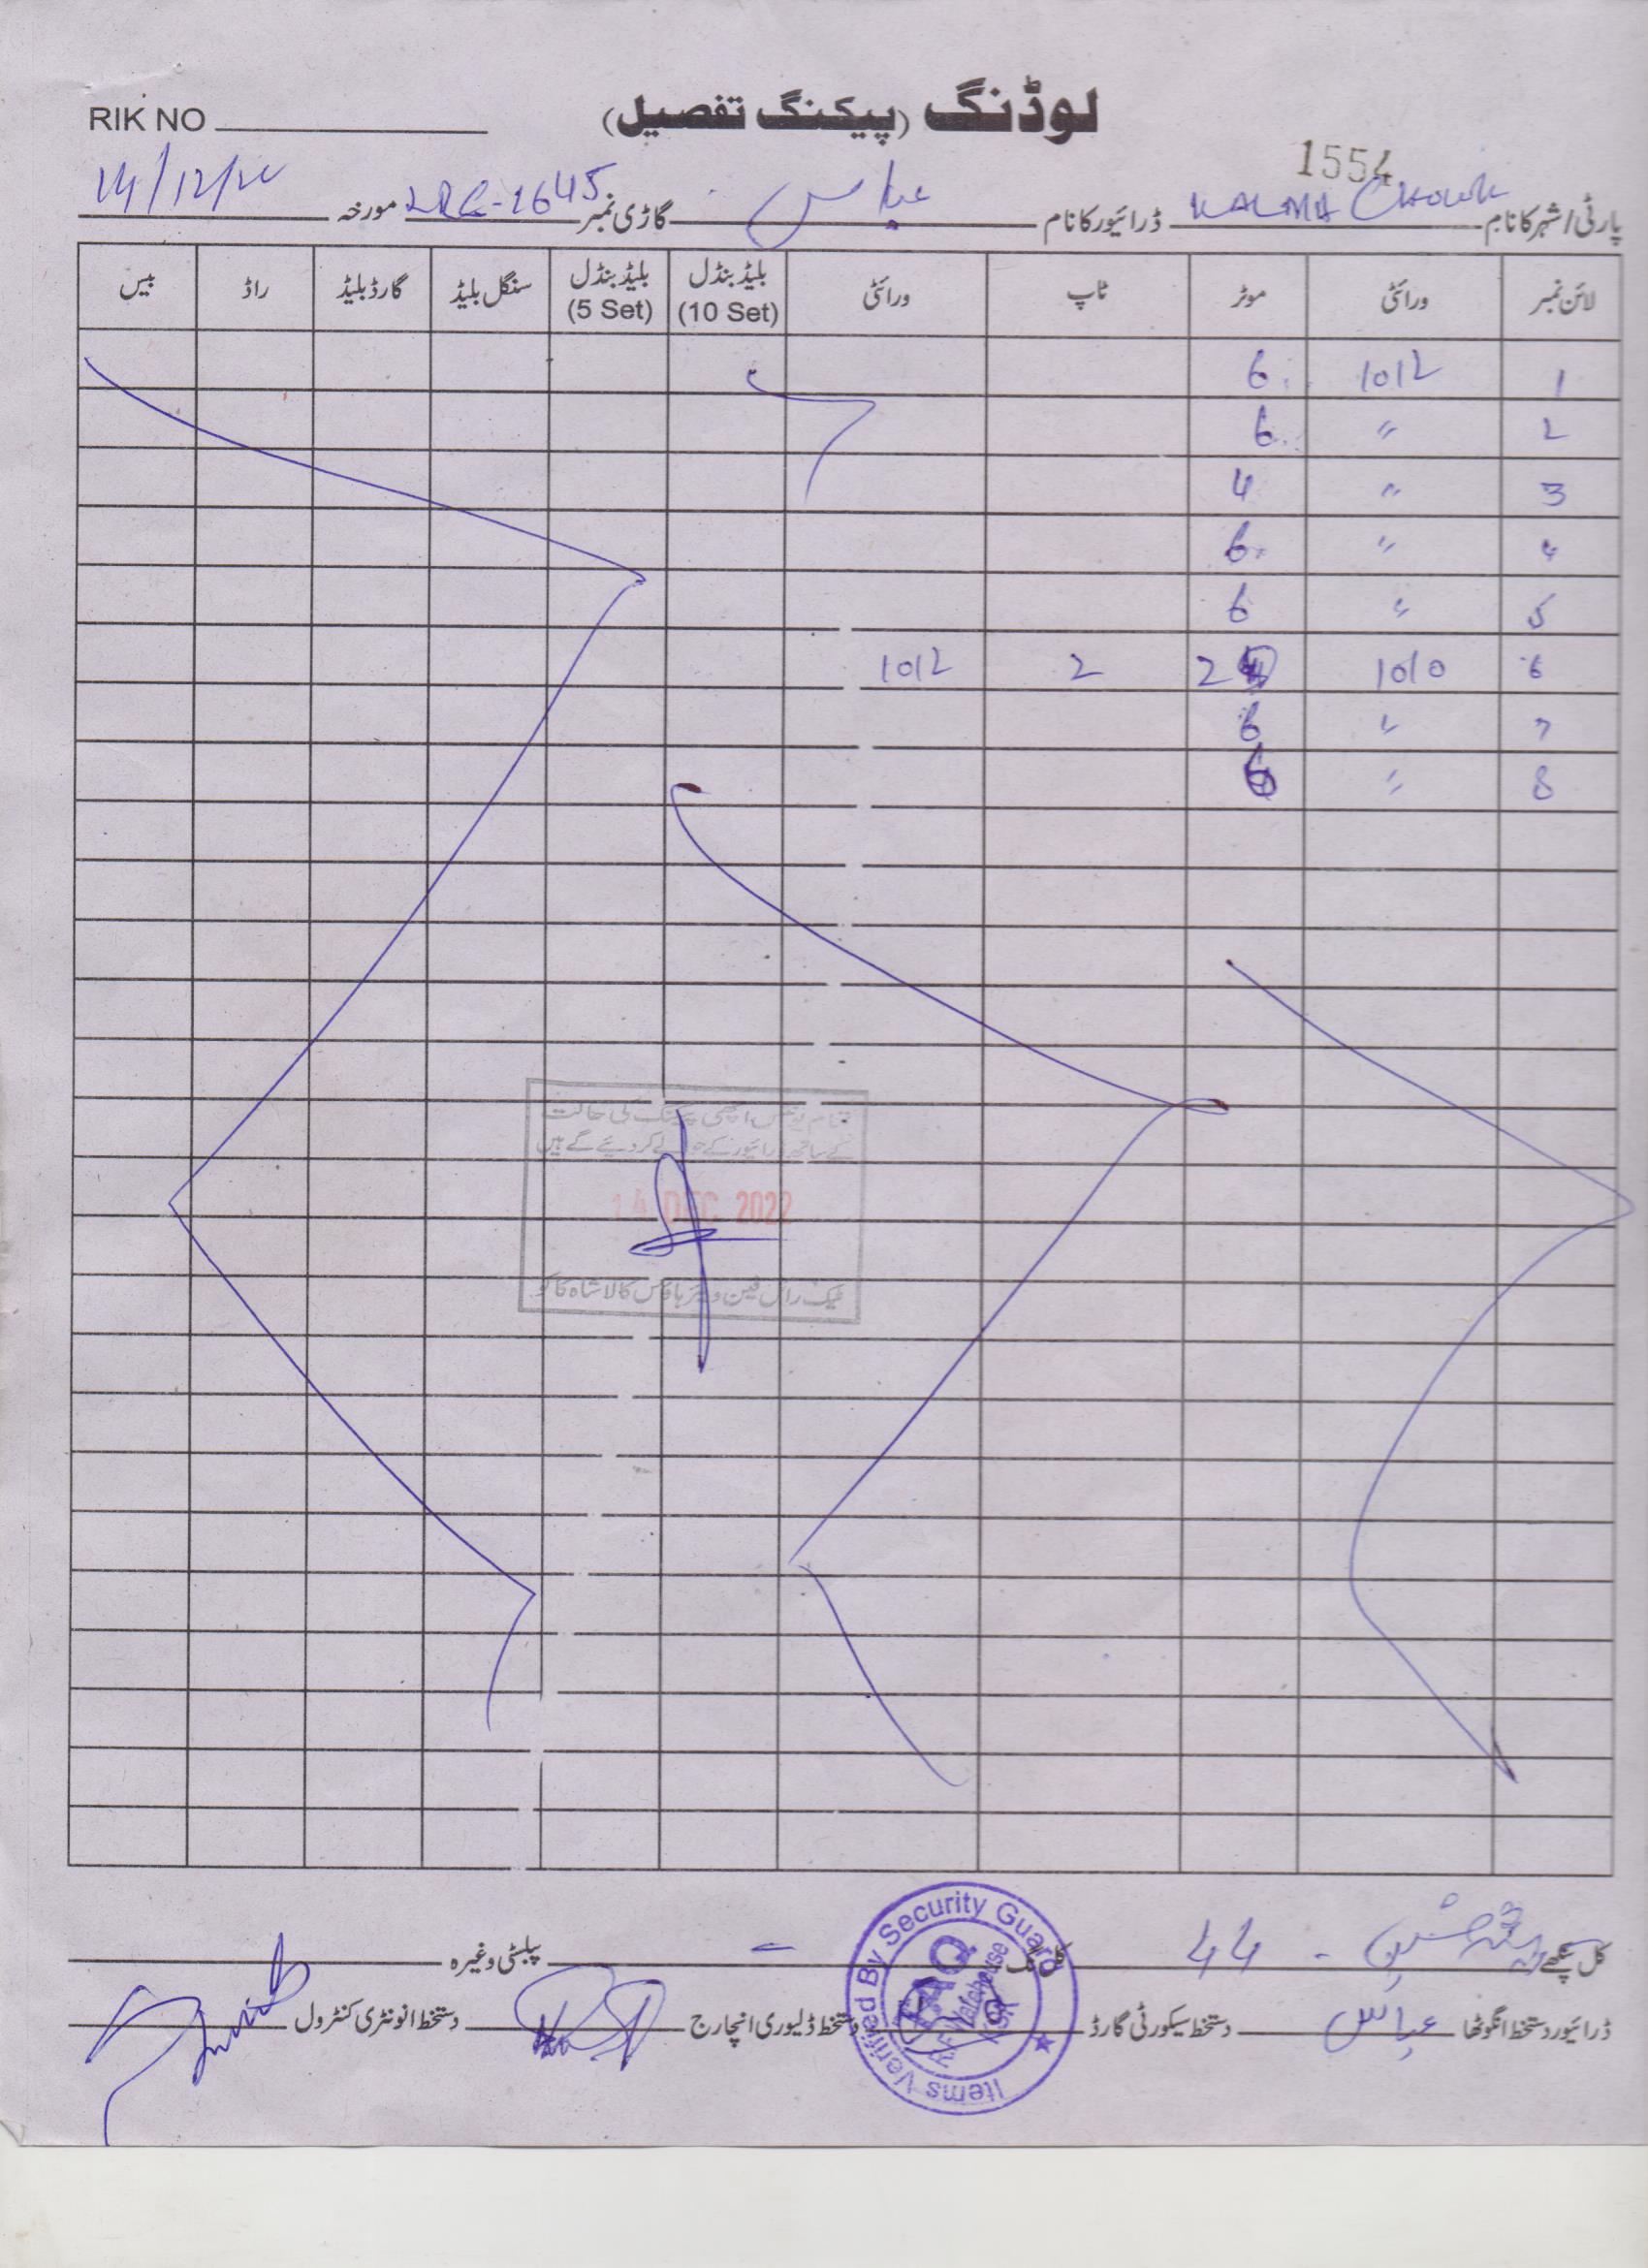 RIK NO
لوڈنگ (پیکنگ تفصیل)
1554
پارٹی/شہر کا نام KALMA CHOWK ڈرائیور کا نام عباس گاڑی نمبر 1645 مورخہ 14/12/22
لائن نمبر ورائٹی موٹر ٹاپ ورائٹی بلیڈ بنڈل (10 Set) بلیڈ بنڈل (5 Set) سنگل بلیڈ گارڈ بلیڈ راڈ بیس
1 1012 6
2 〃 6
3 〃 4
4 〃 6
5 〃 6
6 1010 2 2 1012
7 〃 6
8 〃 6
تمام یونٹس اچھی پیکنگ کی حالت
کے ساتھ ڈرائیور کے حوالے کر دیئے گئے ہیں
14 DEC 2022
ویئر ہاؤس کالا شاہ کاکو
کل پنکھے 44 کل نگ پبلسٹی وغیرہ
ڈرائیور دستخط انگوٹھا عباس دستخط سیکورٹی گارڈ دستخط ڈلیوری انچارج دستخط انونٹری کنٹرول
Items Verified By Security Guard
FAQ
R.F Warehouse
KSK